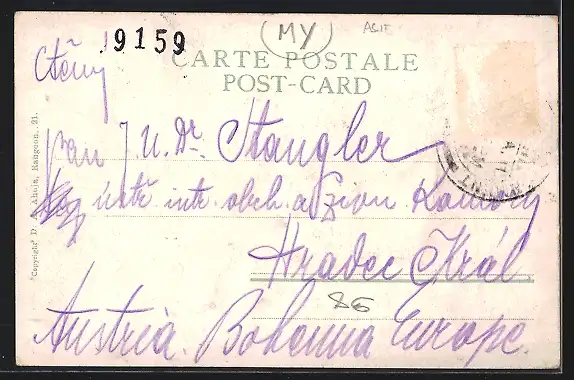 9159
(MY)
ASIE
CARTE POSTALE
POST-CARD
Ctěný
pan J.U.Dr. Stangler
obch. a živn Komory
Hradec Král.
86
Austria. Bohemia Europe.
"Copyright" D. A. Ahuja, Rangoon. 21.